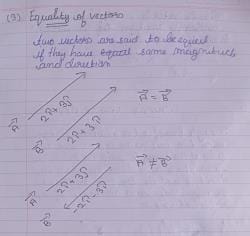 (9) Equality of vectors
two vectors are said to be equal
if they have equal same magnitude
and direction
2î+3ĵ
A⃗
A⃗ = B⃗
2î+3ĵ
B⃗
2î+3ĵ
A⃗ ≠ B⃗
A⃗
-2î-3ĵ
B⃗